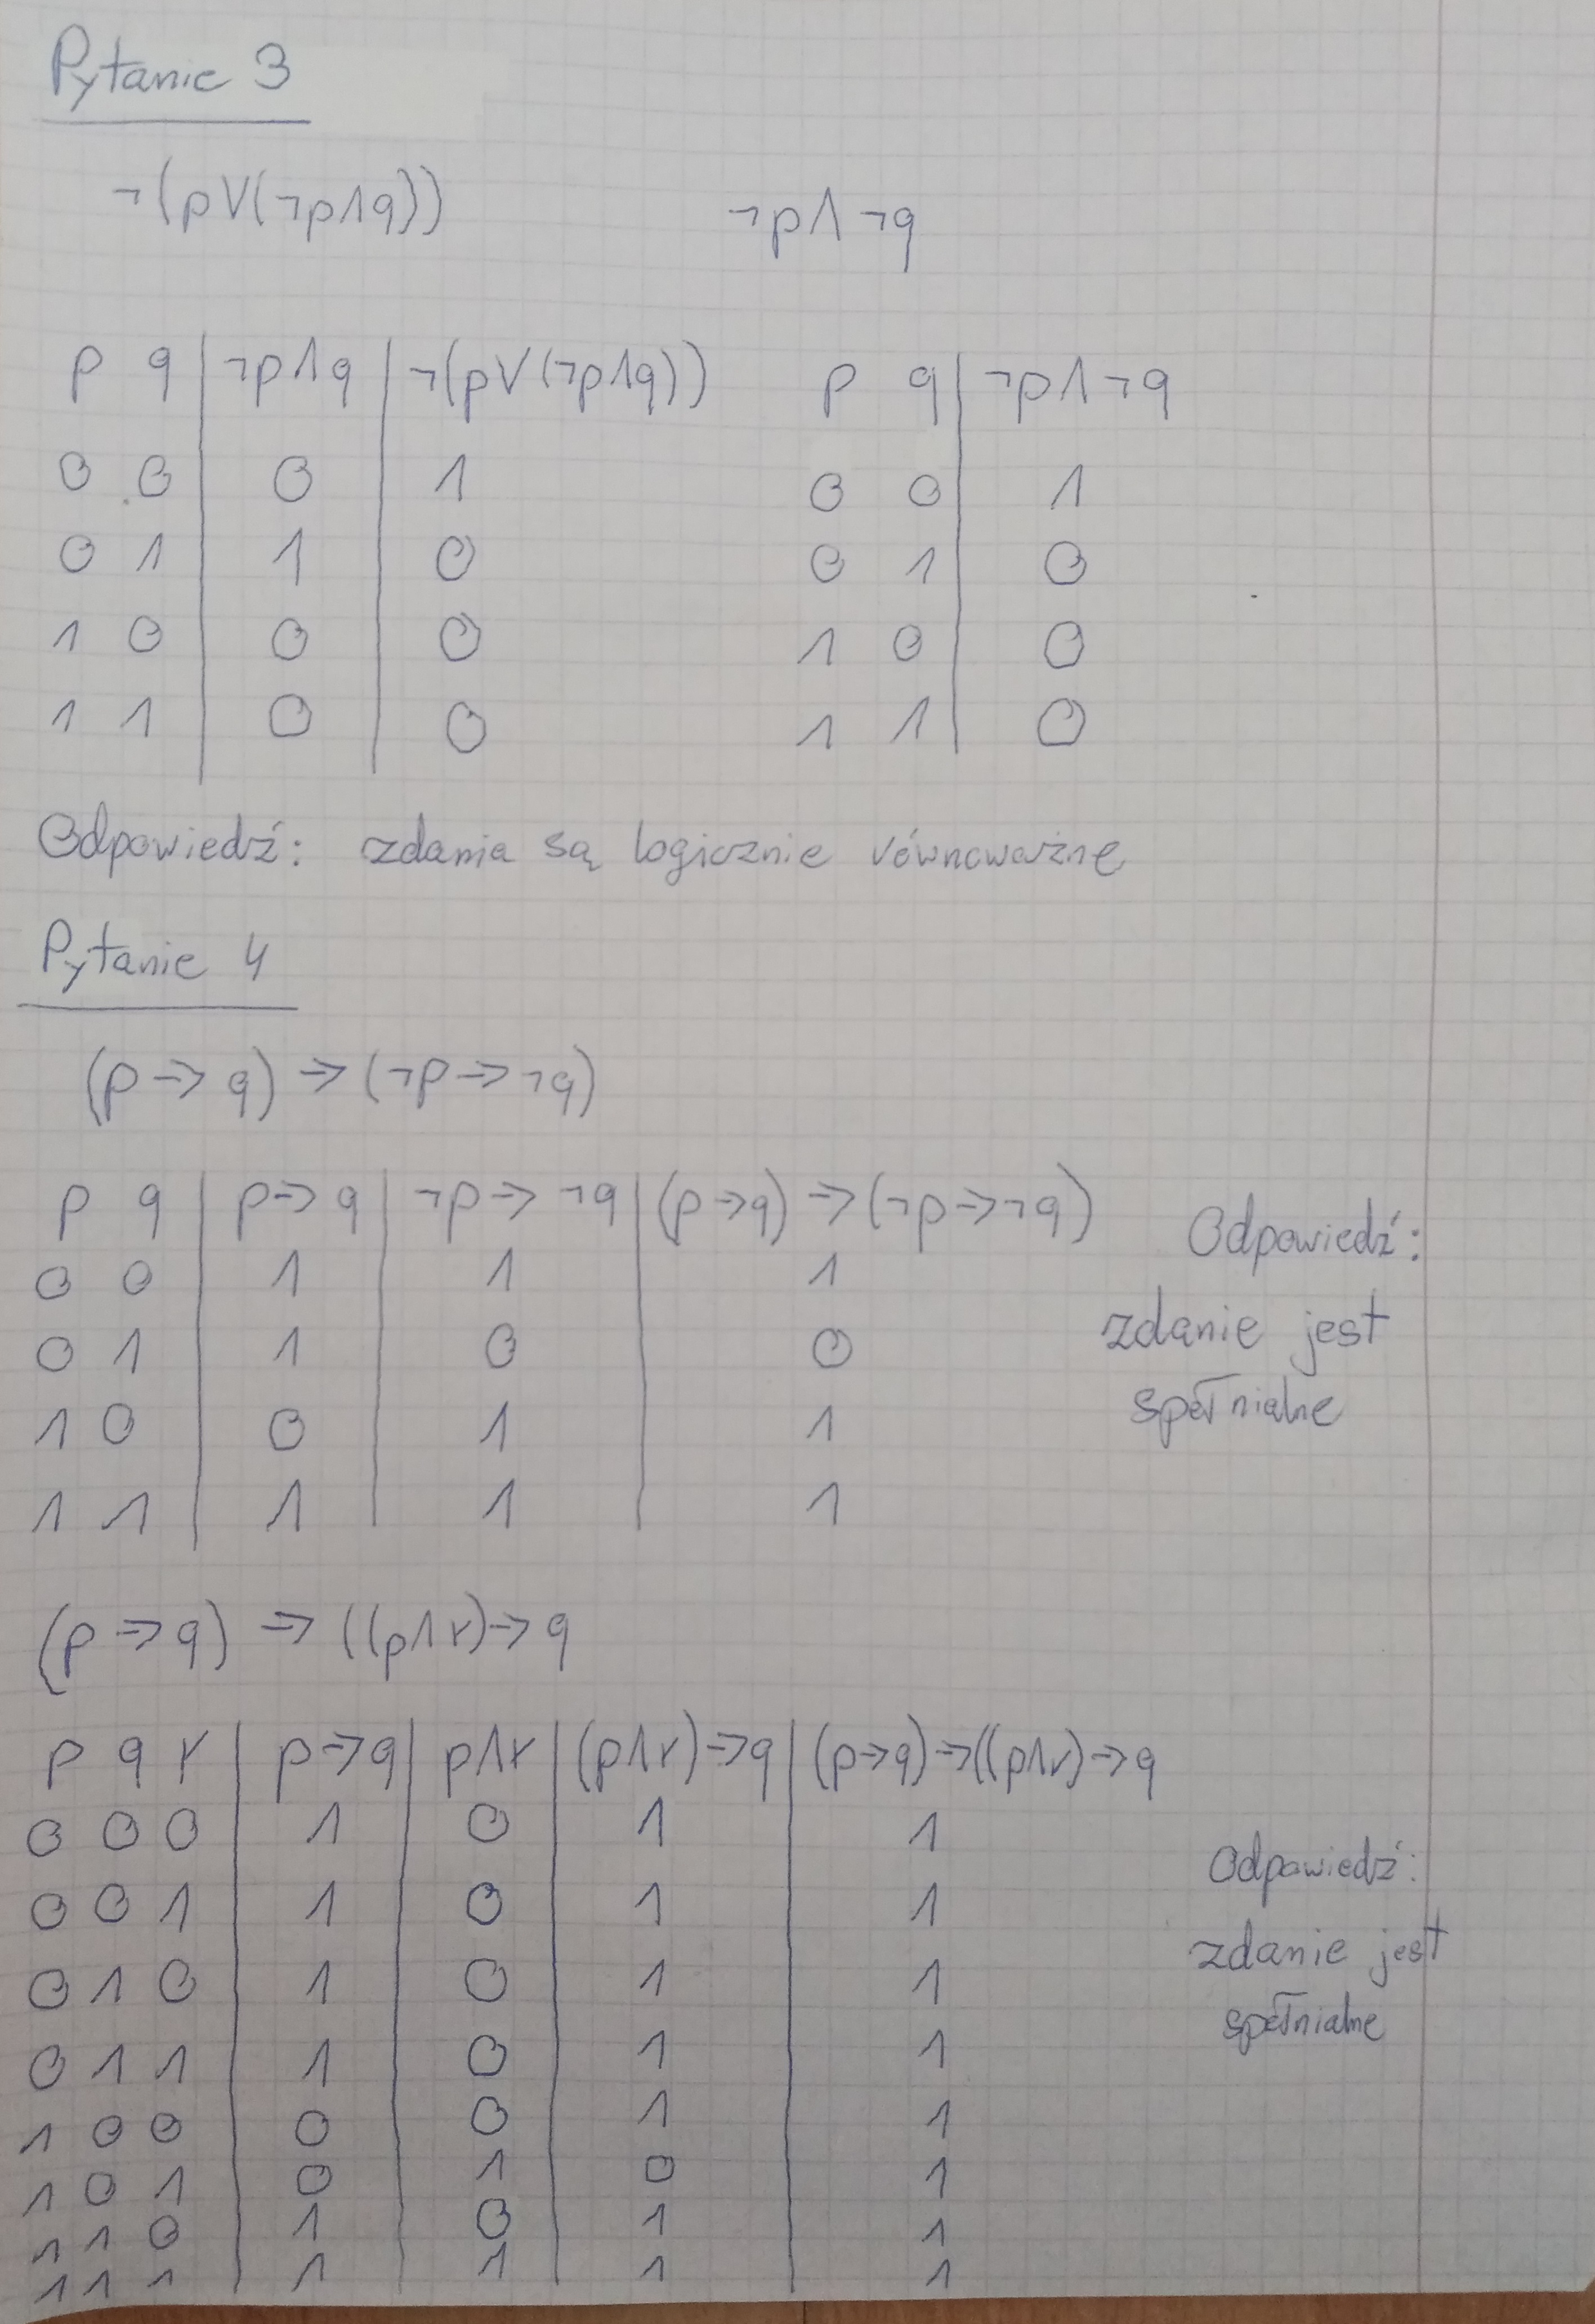 Pytanie 3
¬(p∨(¬p∧q)) ¬p∧¬q
p q | ¬p∧q | ¬(p∨(¬p∧q)) p q | ¬p∧¬q
0 0 | 0 | 1 0 0 | 1
0 1 | 1 | 0 0 1 | 0
1 0 | 0 | 0 1 0 | 0
1 1 | 0 | 0 1 1 | 0
Odpowiedź: zdania są logicznie równoważne
Pytanie 4
(p → q) → (¬p → ¬q)
p q | p → q | ¬p → ¬q | (p → q) → (¬p → ¬q)
0 0 | 1 | 1 | 1
0 1 | 1 | 0 | 0
1 0 | 0 | 1 | 1
1 1 | 1 | 1 | 1
Odpowiedź:
zdanie jest
spełnialne
(p → q) → ((p∧r) → q
p q r | p → q | p∧r | (p∧r) → q | (p → q) → ((p∧r) → q
0 0 0 | 1 | 0 | 1 | 1
0 0 1 | 1 | 0 | 1 | 1
0 1 0 | 1 | 0 | 1 | 1
0 1 1 | 1 | 0 | 1 | 1
1 0 0 | 0 | 0 | 1 | 1
1 0 1 | 0 | 1 | 0 | 1
1 1 0 | 1 | 0 | 1 | 1
1 1 1 | 1 | 1 | 1 | 1
Odpowiedź:
zdanie jest
spełnialne